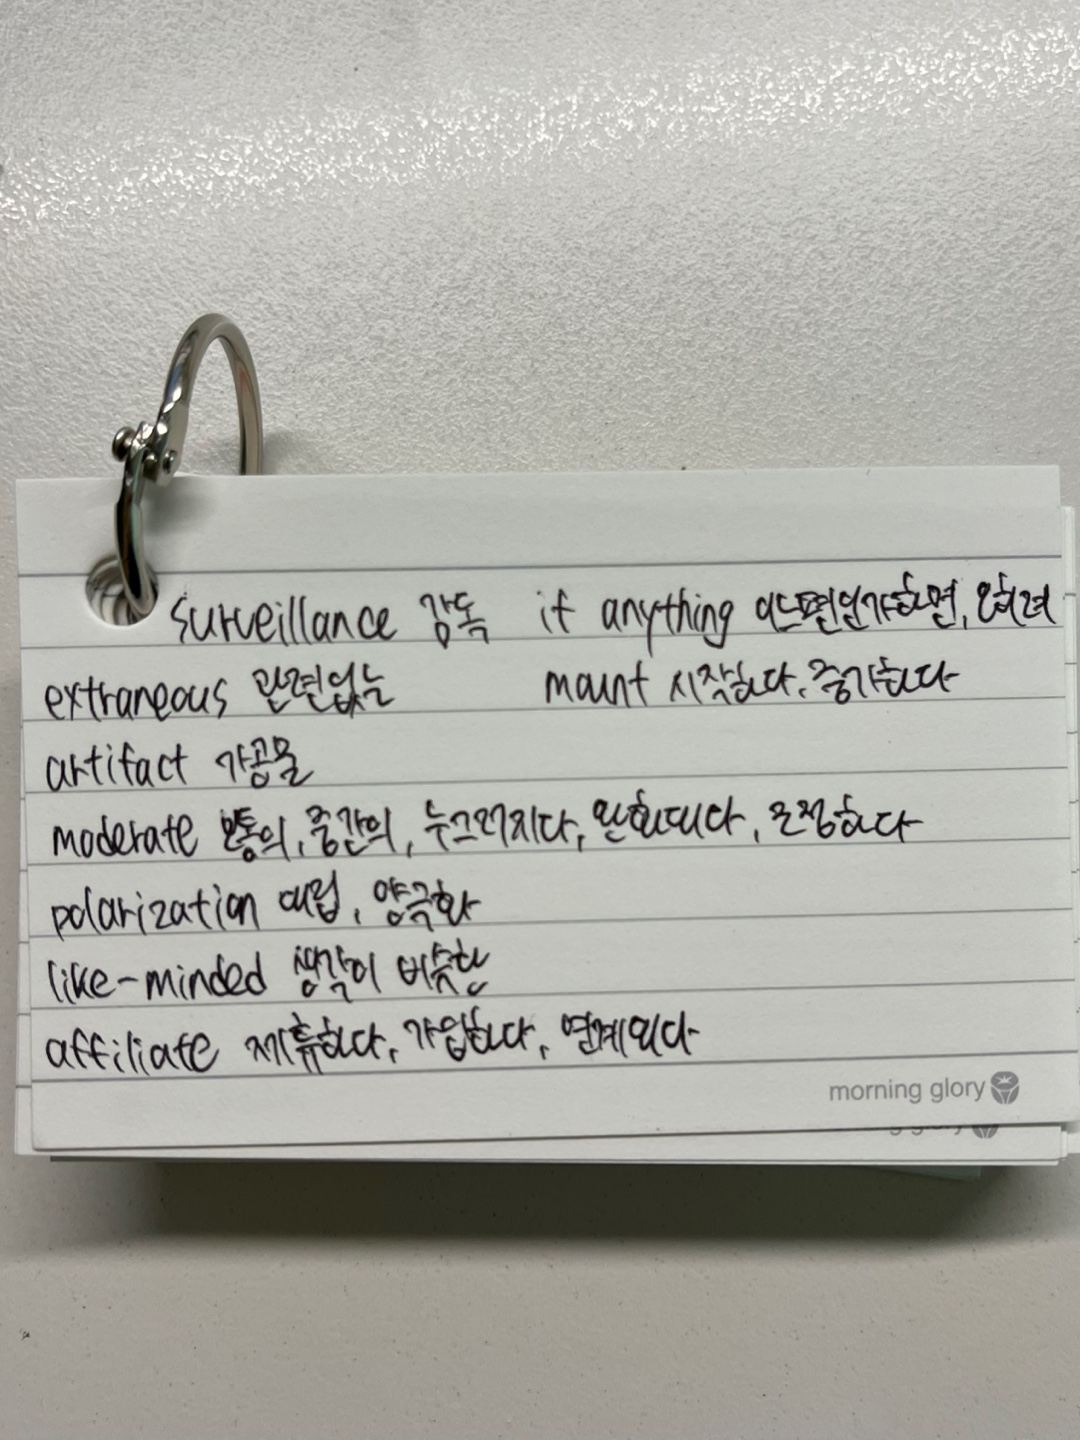 surveillance 감독 if anything 어느편인가하면, 오히려
extraneous 관련없는 mount 시작하다, 증가하다
artifact 가공물
moderate 보통의, 중간의, 누그러지다, 완화되다, 조정하다
polarization 대립, 양극화
like-minded 생각이 비슷한
affiliate 제휴하다, 가입하다, 연계되다
morning glory